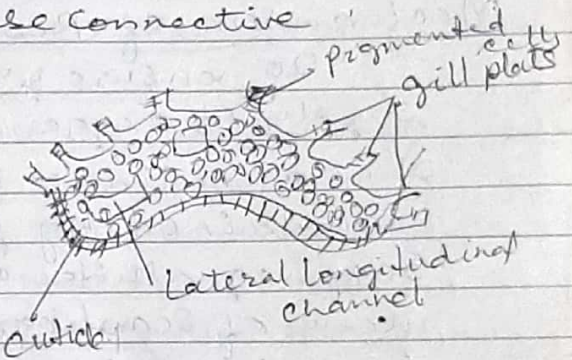 se Connective
pigmented
cells
gill plats
Lateral Longitudinal
channel
Cuticle